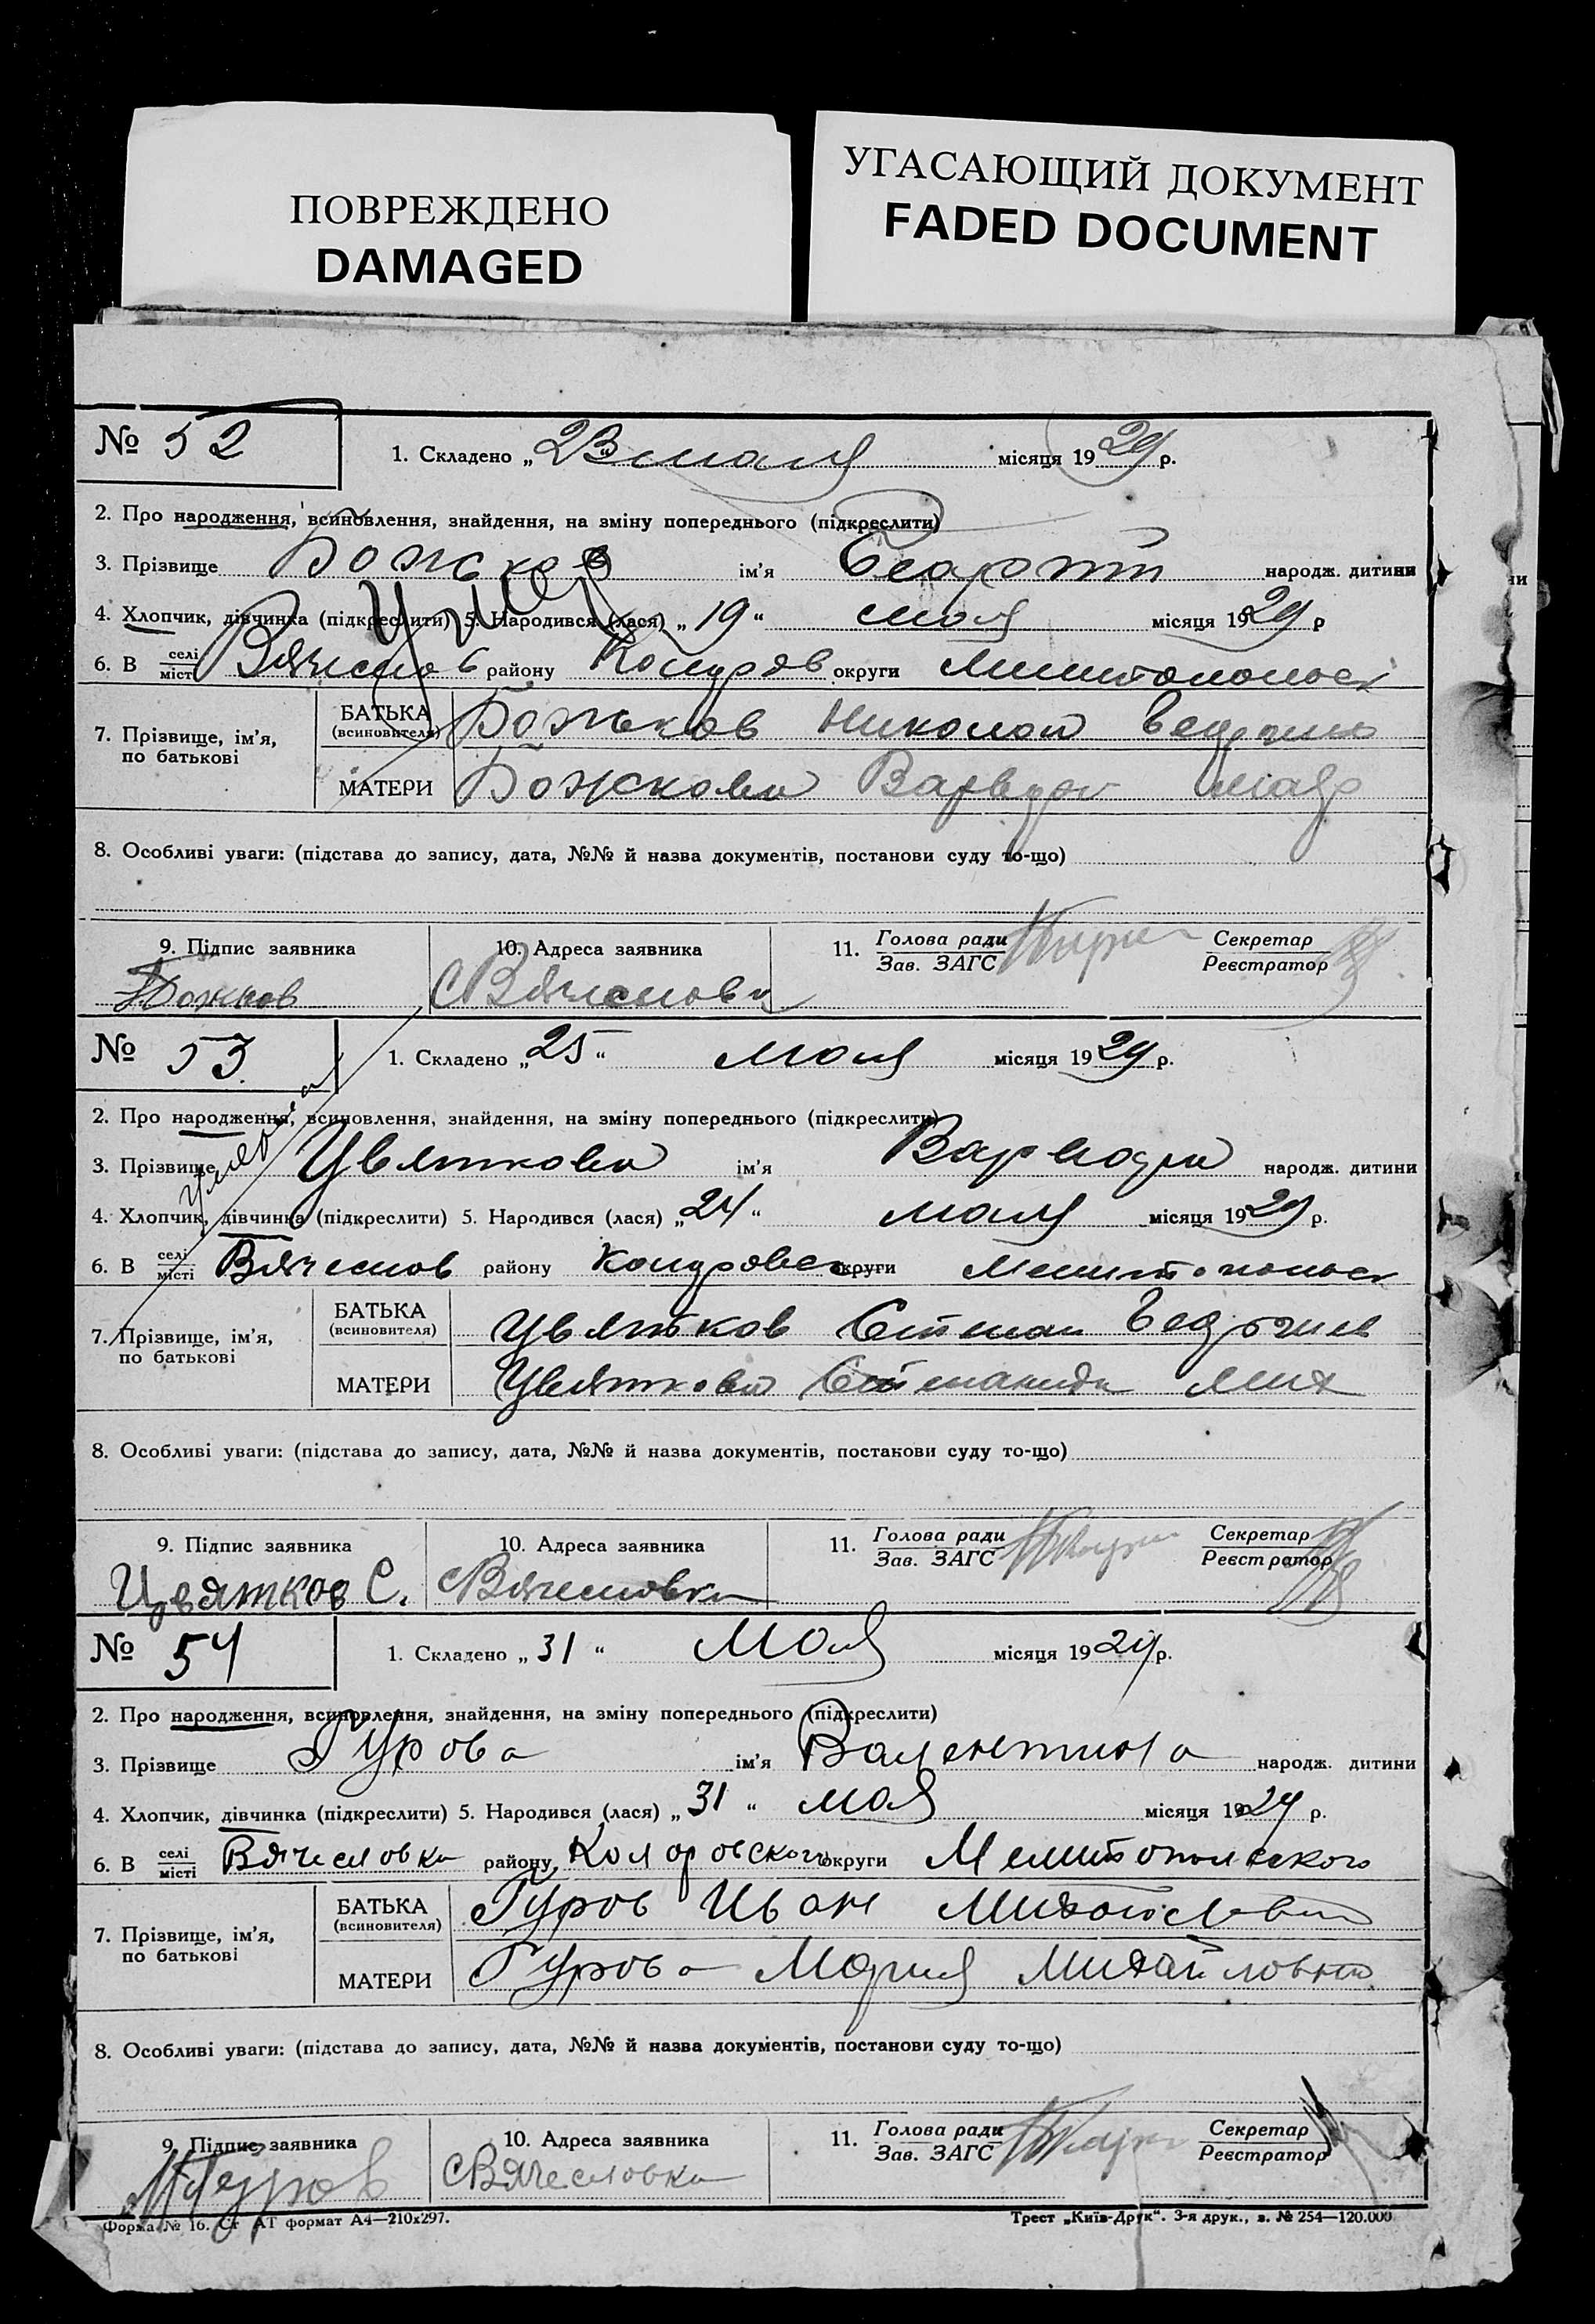 ПОВРЕЖДЕНО
DAMAGED
УГАСАЮЩИЙ ДОКУМЕНТ
FADED DOCUMENT
№ 52
1. Складено „23“ мая місяця 1929 р.
2. Про народження, всиновлення, знайдення, на зміну попереднього (підкреслити)
3. Прізвище Божков ім'я Георгий народж. дитини
Умер
4. Хлопчик, дівчинка (підкреслити) 5. Народився (лася) „19“ мая місяця 1929 р
6. В селі/місті Вячеслов району Колуров округи Мелитопольск
7. Прізвище, ім'я, по батькові
БАТЬКА (всиновителя) Божков Николай
МАТЕРИ Божкова Варвара
8. Особливі уваги: (підстава до запису, дата, №№ й назва документів, постанови суду то-що)
9. Підпис заявника
10. Адреса заявника
11. Голова ради/Зав. ЗАГС
Секретар/Реєстратор
Божков
С Вячесловка
№ 53.
1. Складено „25“ мая місяця 1929 р.
2. Про народження, всиновлення, знайдення, на зміну попереднього (підкреслити)
3. Прізвище Цвяткова ім'я Варвара народж. дитини
умерла
4. Хлопчик, дівчинка (підкреслити) 5. Народився (лася) „24“ мая місяця 1929 р.
6. В селі/місті Вячеслов району округи Мелитопольск
7. Прізвище, ім'я, по батькові
БАТЬКА (всиновителя) Цвятков Степан
МАТЕРИ Цвяткова Степанида Мих
8. Особливі уваги: (підстава до запису, дата, №№ й назва документів, постанови суду то-що)
9. Підпис заявника
10. Адреса заявника
11. Голова ради/Зав. ЗАГС
Секретар/Реєстратор
Цвятков С.
С Вячесловка
№ 54
1. Складено „31“ мая місяця 1929 р.
2. Про народження, всиновлення, знайдення, на зміну попереднього (підкреслити)
3. Прізвище Гурова ім'я Валентина народж. дитини
4. Хлопчик, дівчинка (підкреслити) 5. Народився (лася) „31“ мая місяця 1929 р.
6. В селі/місті Вячесловка району Коларовского округи Мелитопольского
7. Прізвище, ім'я, по батькові
БАТЬКА (всиновителя) Гуров Иван Михайлович
МАТЕРИ Гурова Мария Михайловна
8. Особливі уваги: (підстава до запису, дата, №№ й назва документів, постанови суду то-що)
9. Підпис заявника
10. Адреса заявника
11. Голова ради/Зав. ЗАГС
Секретар/Реєстратор
Гуров
С Вячесловка
Форма № 16. Ст АТ формат А4—210х297.
Трест „Київ-Друк“. 3-я друк., з. № 254—120.000